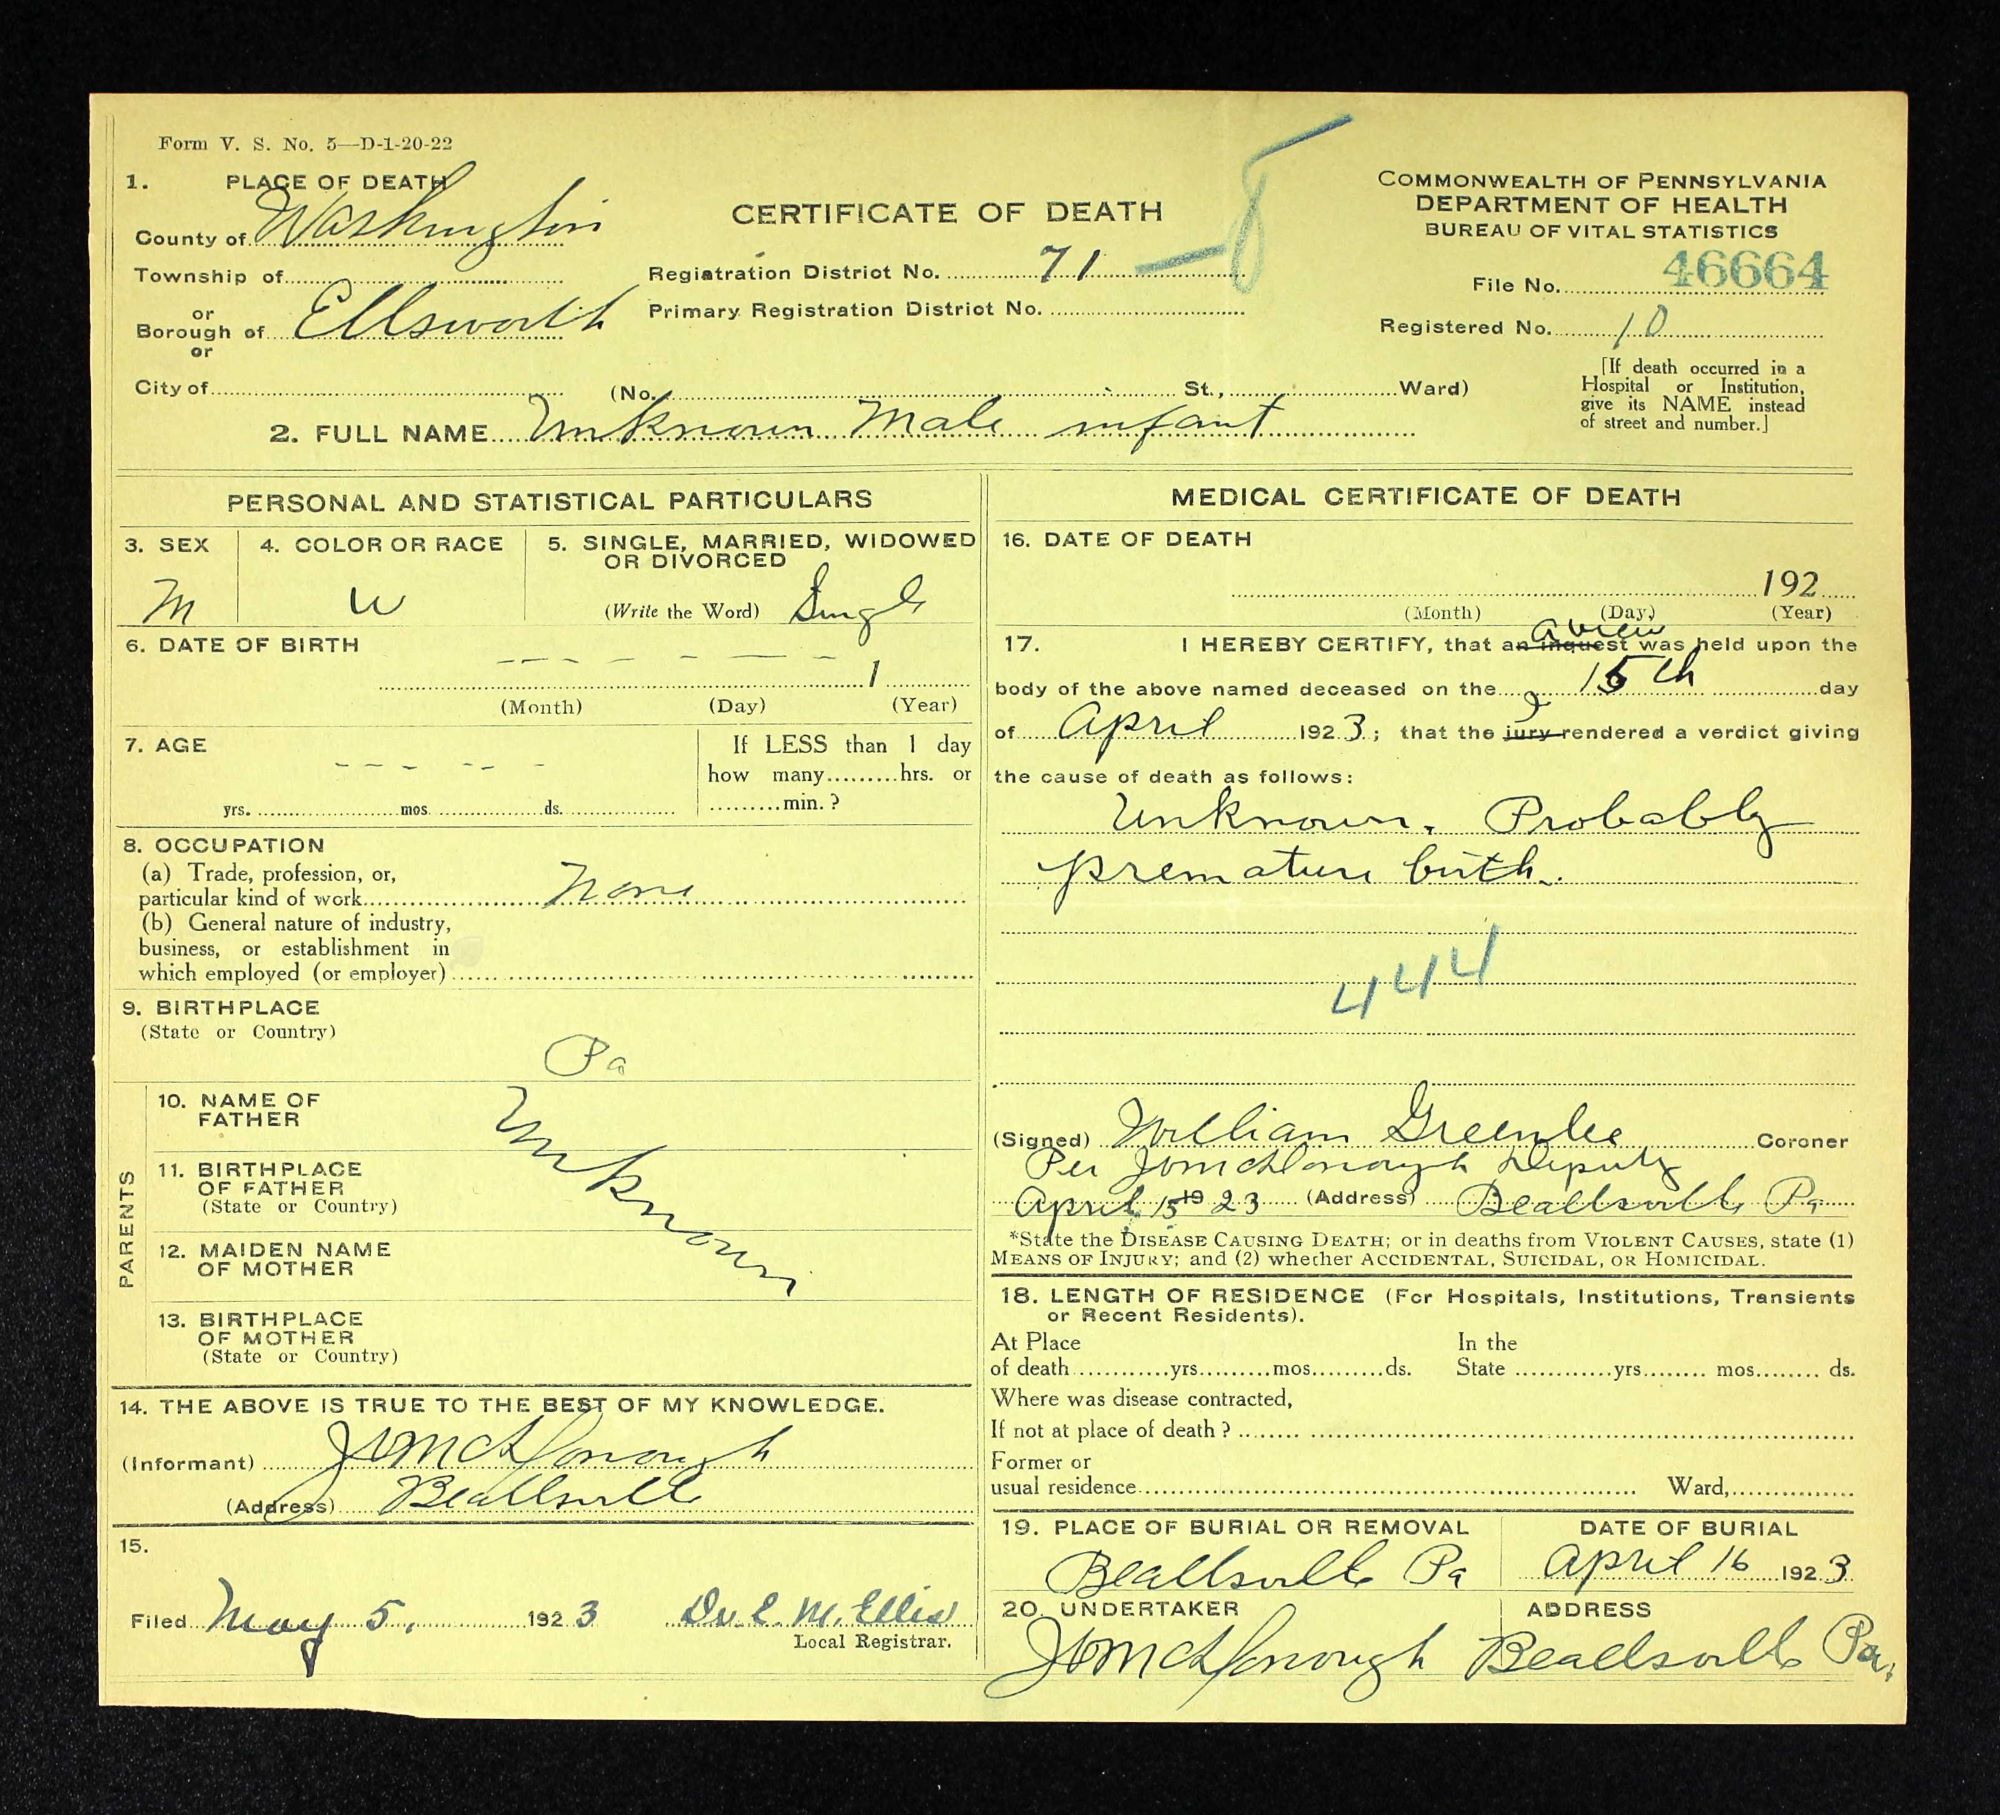 Form V. S. No. 5—D-1-20-22
1. PLACE OF DEATH
County of Washington
Township of
or
Borough of Ellsworth
or
City of
CERTIFICATE OF DEATH
Registration District No. 71 — 8
Primary Registration District No.
(No. St., Ward)
COMMONWEALTH OF PENNSYLVANIA
DEPARTMENT OF HEALTH
BUREAU OF VITAL STATISTICS
File No. 46664
Registered No. 10
[If death occurred in a
Hospital or Institution,
give its NAME instead
of street and number.]
2. FULL NAME Unknown Male infant
PERSONAL AND STATISTICAL PARTICULARS
3. SEX
M
4. COLOR OR RACE
W
5. SINGLE, MARRIED, WIDOWED
OR DIVORCED
(Write the Word) Single
6. DATE OF BIRTH
— — — — — — — 1
(Month) (Day) (Year)
7. AGE
— — — — — —
yrs. mos. ds.
If LESS than 1 day
how many hrs. or
min. ?
8. OCCUPATION
(a) Trade, profession, or,
particular kind of work None
(b) General nature of industry,
business, or establishment in
which employed (or employer)
9. BIRTHPLACE
(State or Country)
Pa
PARENTS
10. NAME OF
FATHER
11. BIRTHPLACE
OF FATHER
(State or Country)
12. MAIDEN NAME
OF MOTHER
13. BIRTHPLACE
OF MOTHER
(State or Country)
Unknown
14. THE ABOVE IS TRUE TO THE BEST OF MY KNOWLEDGE.
(Informant) McDonough
(Address) Beallsville
15.
Filed May 5, 1923 Dr. C. M. Ellis
Local Registrar.
MEDICAL CERTIFICATE OF DEATH
16. DATE OF DEATH
192
(Month) (Day) (Year)
a view
17. I HEREBY CERTIFY, that an inquest was held upon the
body of the above named deceased on the 15th day
I
of April 1923; that the jury rendered a verdict giving
the cause of death as follows:
Unknown. Probably
premature birth.
444
(Signed) William Greenlee Coroner
Per McDonough Deputy
April 15 19 23 (Address) Beallsville Pa
*State the DISEASE CAUSING DEATH; or in deaths from VIOLENT CAUSES, state (1)
MEANS OF INJURY; and (2) whether ACCIDENTAL, SUICIDAL, OR HOMICIDAL.
18. LENGTH OF RESIDENCE (For Hospitals, Institutions, Transients
or Recent Residents).
At Place In the
of death yrs. mos. ds. State yrs. mos. ds.
Where was disease contracted,
If not at place of death ?
Former or
usual residence Ward,
19. PLACE OF BURIAL OR REMOVAL
Beallsville Pa
DATE OF BURIAL
April 16 1923
20. UNDERTAKER
McDonough
ADDRESS
Beallsville Pa.